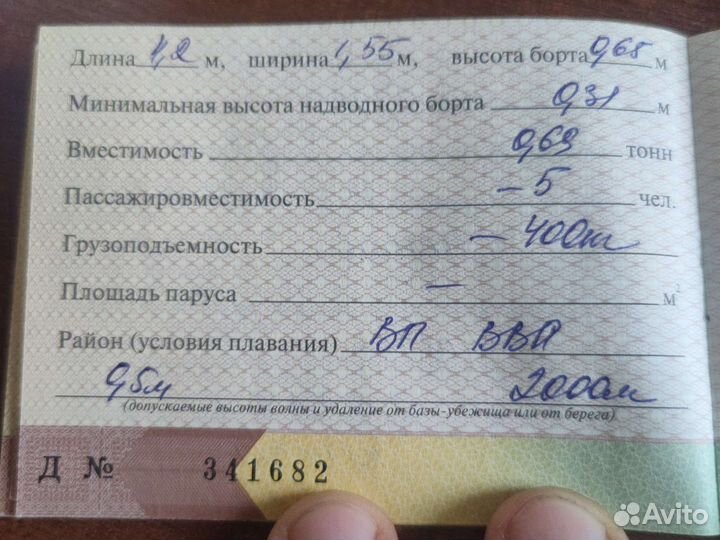 Длина 4,2 м, ширина 1,55 м, высота борта 0,68 м
Минимальная высота надводного борта 0,31 м
Вместимость 0,69 тонн
Пассажировместимость – 5 чел.
Грузоподъемность – 400кг
Площадь паруса — м²
Район (условия плавания) ВП ВВП
0,5м 2000м
(допускаемые высоты волны и удаление от базы-убежища или от берега)
Д № 341682
Avito